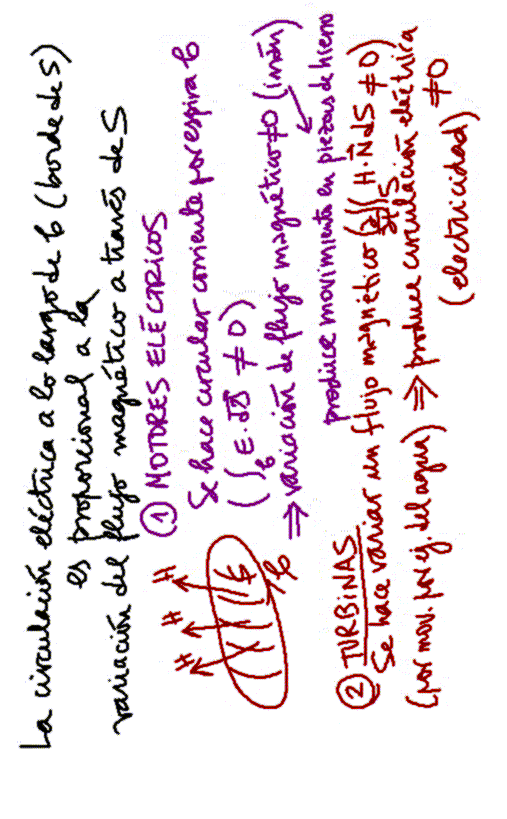 La circulación eléctrica a lo largo de C (borde de S)
es proporcional a la
variación del flujo magnético a través de S
① MOTORES ELÉCTRICOS
Se hace circular corriente por espira C
(∫_C E · dS ≠ 0)
⇒ variación de flujo magnético ≠ 0 (imán)
produce movimiento en piezas de hierro
H H H
S
C
② TURBINAS
Se hace variar un flujo magnético (∂/∂t ∬_S H · N dS ≠ 0)
(por mov. por ej. del agua) ⇒ produce circulación eléctrica
≠ 0
(electricidad)